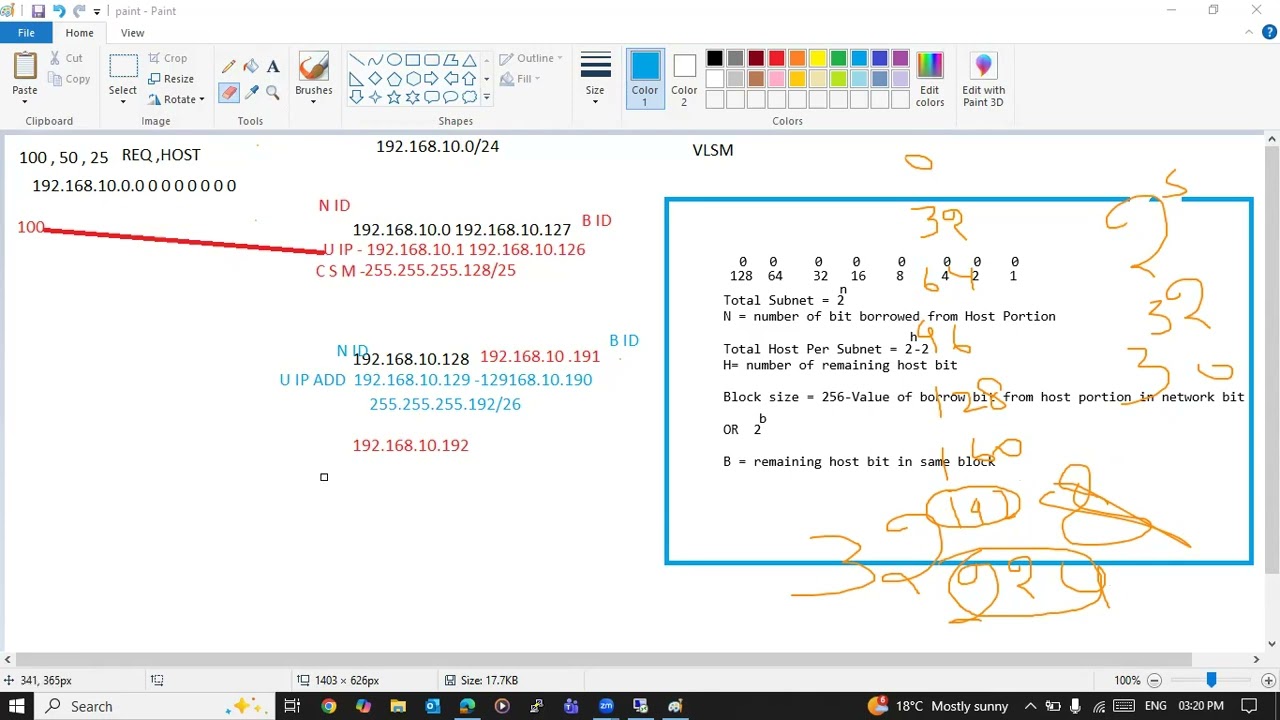 paint - Paint
File Home View
Cut
Copy
Paste
Clipboard
Select
Crop
Resize
Rotate
Image
A
Tools
Brushes
Outline
Fill
Shapes
Size
Color 1
Color 2
Edit colors
Edit with Paint 3D
Colors
100 , 50 , 25 REQ ,HOST
192.168.10.0/24
VLSM
192.168.10.0.0 0 0 0 0 0 0 0
N ID
B ID
100
192.168.10.0 192.168.10.127
U IP - 192.168.10.1 192.168.10.126
C S M -255.255.255.128/25
N ID
B ID
192.168.10.128 192.168.10 .191
U IP ADD 192.168.10.129 -129168.10.190
255.255.255.192/26
192.168.10.192
0 0 0 0 0 0 0 0
128 64 32 16 8 4 2 1
n
Total Subnet = 2
N = number of bit borrowed from Host Portion
h
Total Host Per Subnet = 2-2
H= number of remaining host bit
Block size = 256-Value of borrow bit from host portion in network bit
b
OR 2
B = remaining host bit in same block
0
32
64
96
128
160
5
2
32
30
341, 365px
1403 × 626px
Size: 17.7KB
100%
Search
6
18°C Mostly sunny
ENG
03:20 PM